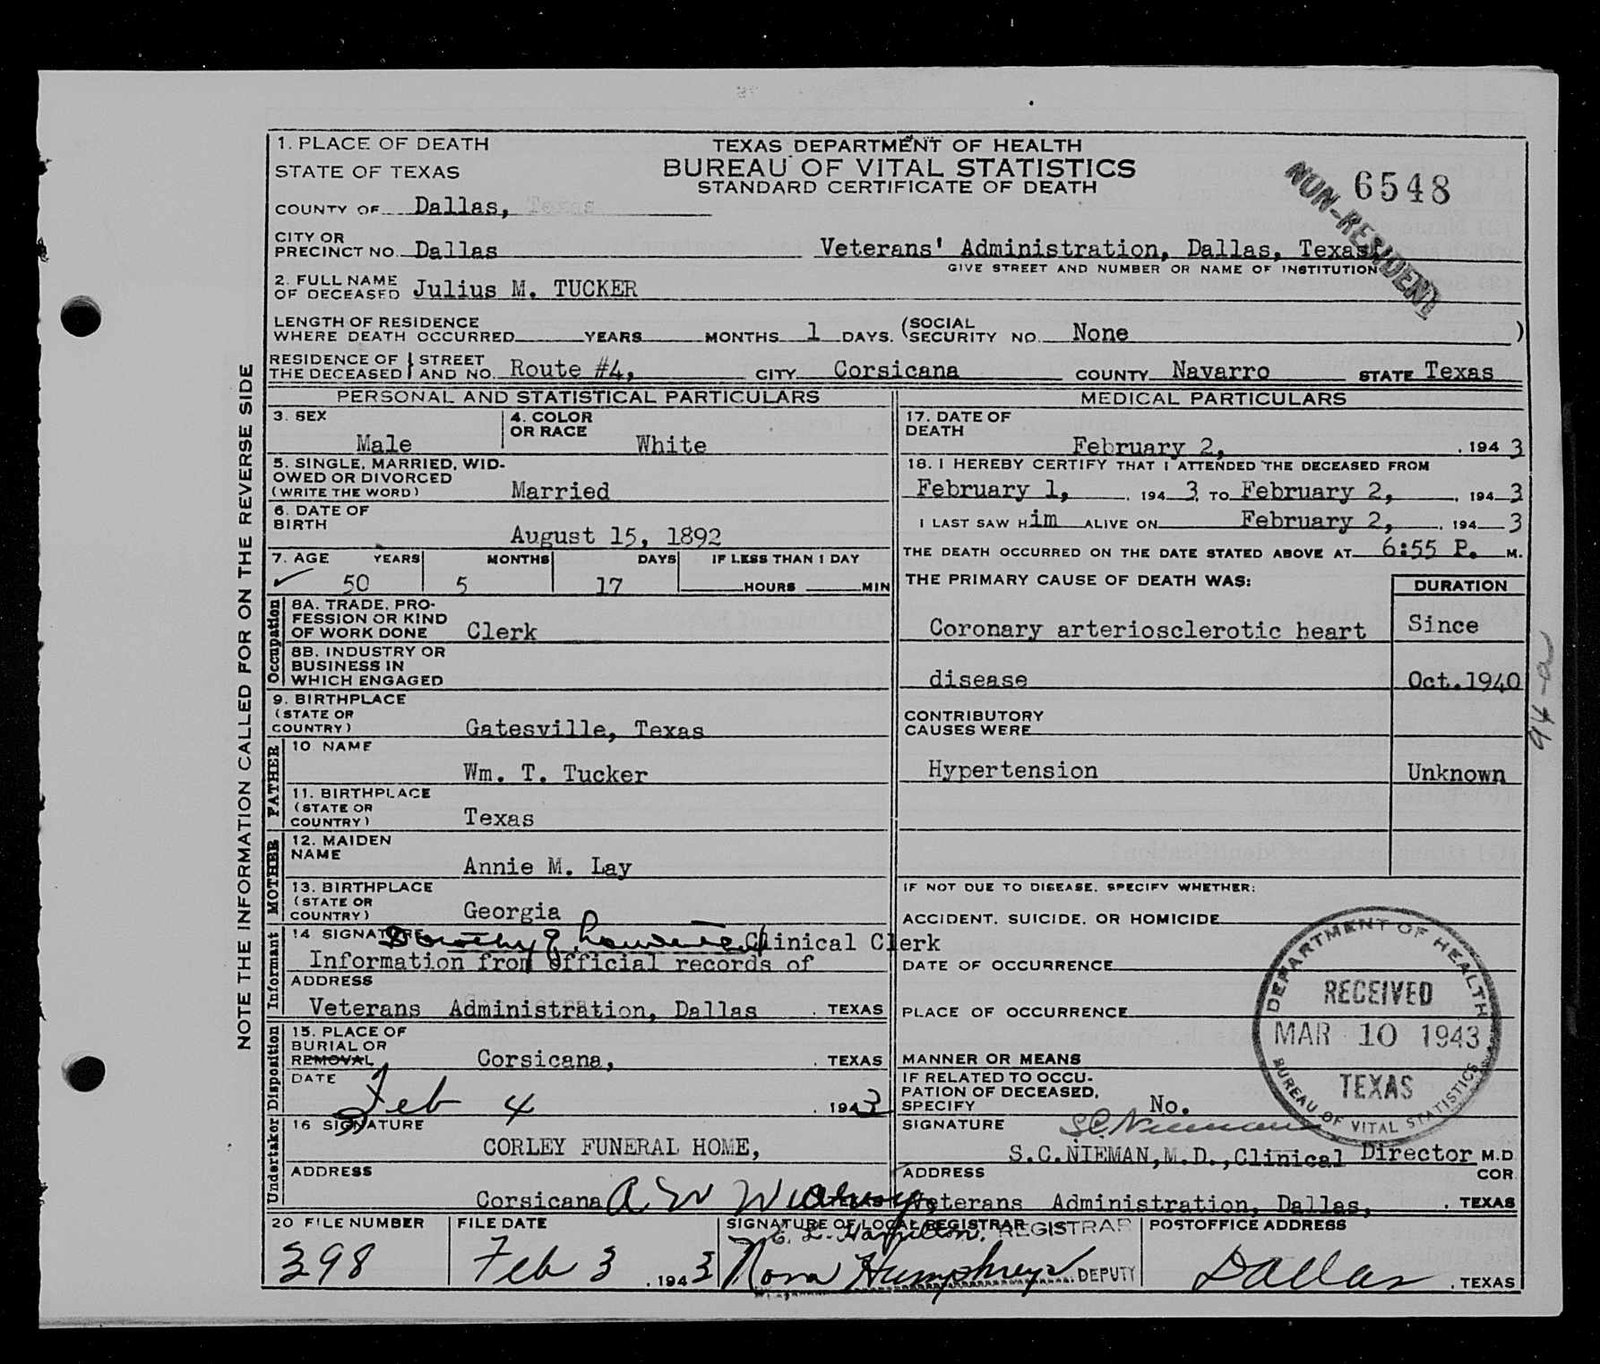 1. PLACE OF DEATH
STATE OF TEXAS
COUNTY OF Dallas, Texas
CITY OR PRECINCT NO. Dallas
TEXAS DEPARTMENT OF HEALTH
BUREAU OF VITAL STATISTICS
STANDARD CERTIFICATE OF DEATH
NON-RESIDENT
6548
Veterans' Administration, Dallas, Texas
GIVE STREET AND NUMBER OR NAME OF INSTITUTION
2. FULL NAME OF DECEASED Julius M. TUCKER
LENGTH OF RESIDENCE WHERE DEATH OCCURRED YEARS MONTHS 1 DAYS. (SOCIAL SECURITY NO. None )
RESIDENCE OF THE DECEASED STREET AND NO. Route #4, CITY Corsicana COUNTY Navarro STATE Texas
NOTE THE INFORMATION CALLED FOR ON THE REVERSE SIDE
PERSONAL AND STATISTICAL PARTICULARS
3. SEX Male
4. COLOR OR RACE White
5. SINGLE, MARRIED, WIDOWED OR DIVORCED (WRITE THE WORD) Married
6. DATE OF BIRTH August 15, 1892
7. AGE YEARS MONTHS DAYS IF LESS THAN 1 DAY
50 5 17 HOURS MIN
Occupation
8A. TRADE, PROFESSION OR KIND OF WORK DONE Clerk
8B. INDUSTRY OR BUSINESS IN WHICH ENGAGED
9. BIRTHPLACE (STATE OR COUNTRY) Gatesville, Texas
FATHER
10 NAME Wm. T. Tucker
11. BIRTHPLACE (STATE OR COUNTRY) Texas
MOTHER
12. MAIDEN NAME Annie M. Lay
13. BIRTHPLACE (STATE OR COUNTRY) Georgia
Informant
14 SIGNATURE Dorothy Clinical Clerk
Information from official records of
ADDRESS
Veterans Administration, Dallas . TEXAS
Disposition
15. PLACE OF BURIAL OR REMOVAL Corsicana, . TEXAS
DATE Feb 4 . 1943
Undertaker
16 SIGNATURE
CORLEY FUNERAL HOME,
ADDRESS
Corsicana TEXAS
MEDICAL PARTICULARS
17. DATE OF DEATH February 2, . 1943
18. I HEREBY CERTIFY THAT I ATTENDED THE DECEASED FROM
February 1, . 1943 TO February 2, . 1943
I LAST SAW Him ALIVE ON February 2, . 1943
THE DEATH OCCURRED ON THE DATE STATED ABOVE AT 6:55 P. M.
THE PRIMARY CAUSE OF DEATH WAS: DURATION
Coronary arteriosclerotic heart Since
disease Oct.1940
94-a
CONTRIBUTORY CAUSES WERE
Hypertension Unknown
IF NOT DUE TO DISEASE, SPECIFY WHETHER:
ACCIDENT, SUICIDE, OR HOMICIDE
DATE OF OCCURRENCE
PLACE OF OCCURRENCE
MANNER OR MEANS
IF RELATED TO OCCUPATION OF DECEASED, SPECIFY No.
DEPARTMENT OF HEALTH
RECEIVED
MAR 10 1943
TEXAS
BUREAU OF VITAL STATISTICS
SIGNATURE S.C. Nieman
S.C.NIEMAN,M.D.,Clinical Director M.D. COR.
ADDRESS
Veterans Administration, Dallas, . TEXAS
20 FILE NUMBER 398
FILE DATE Feb 3 . 1943
SIGNATURE OF LOCAL REGISTRAR REGISTRAR
Nora Humphreys DEPUTY
POSTOFFICE ADDRESS Dallas . TEXAS